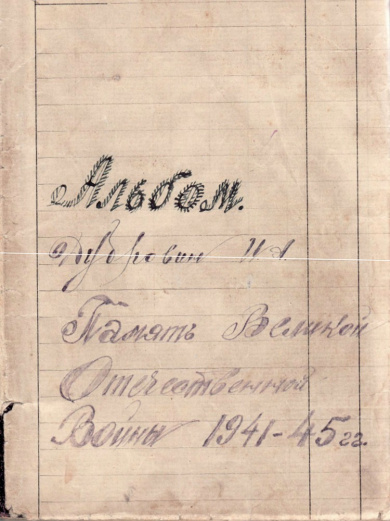 Альбом.
Дубровин И.А.
Память Великой
Отечественной
Войны 1941-45 гг.